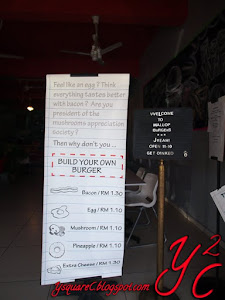 Feel like an egg? Think
everything tastes better
with bacon? Are you
president of the
mushrooms appreciation
society?
Then why don't you ...
BUILD YOUR OWN
BURGER
Bacon / RM 1.30
Egg / RM 1.10
Mushroom / RM 1.10
Pineapple / RM 1.10
Extra Cheese / RM 1.30
WELCOME
TO
WALLOP
BURGERS
OPEN 11-10
GET
Y2C
YsquareC.blogspot.com